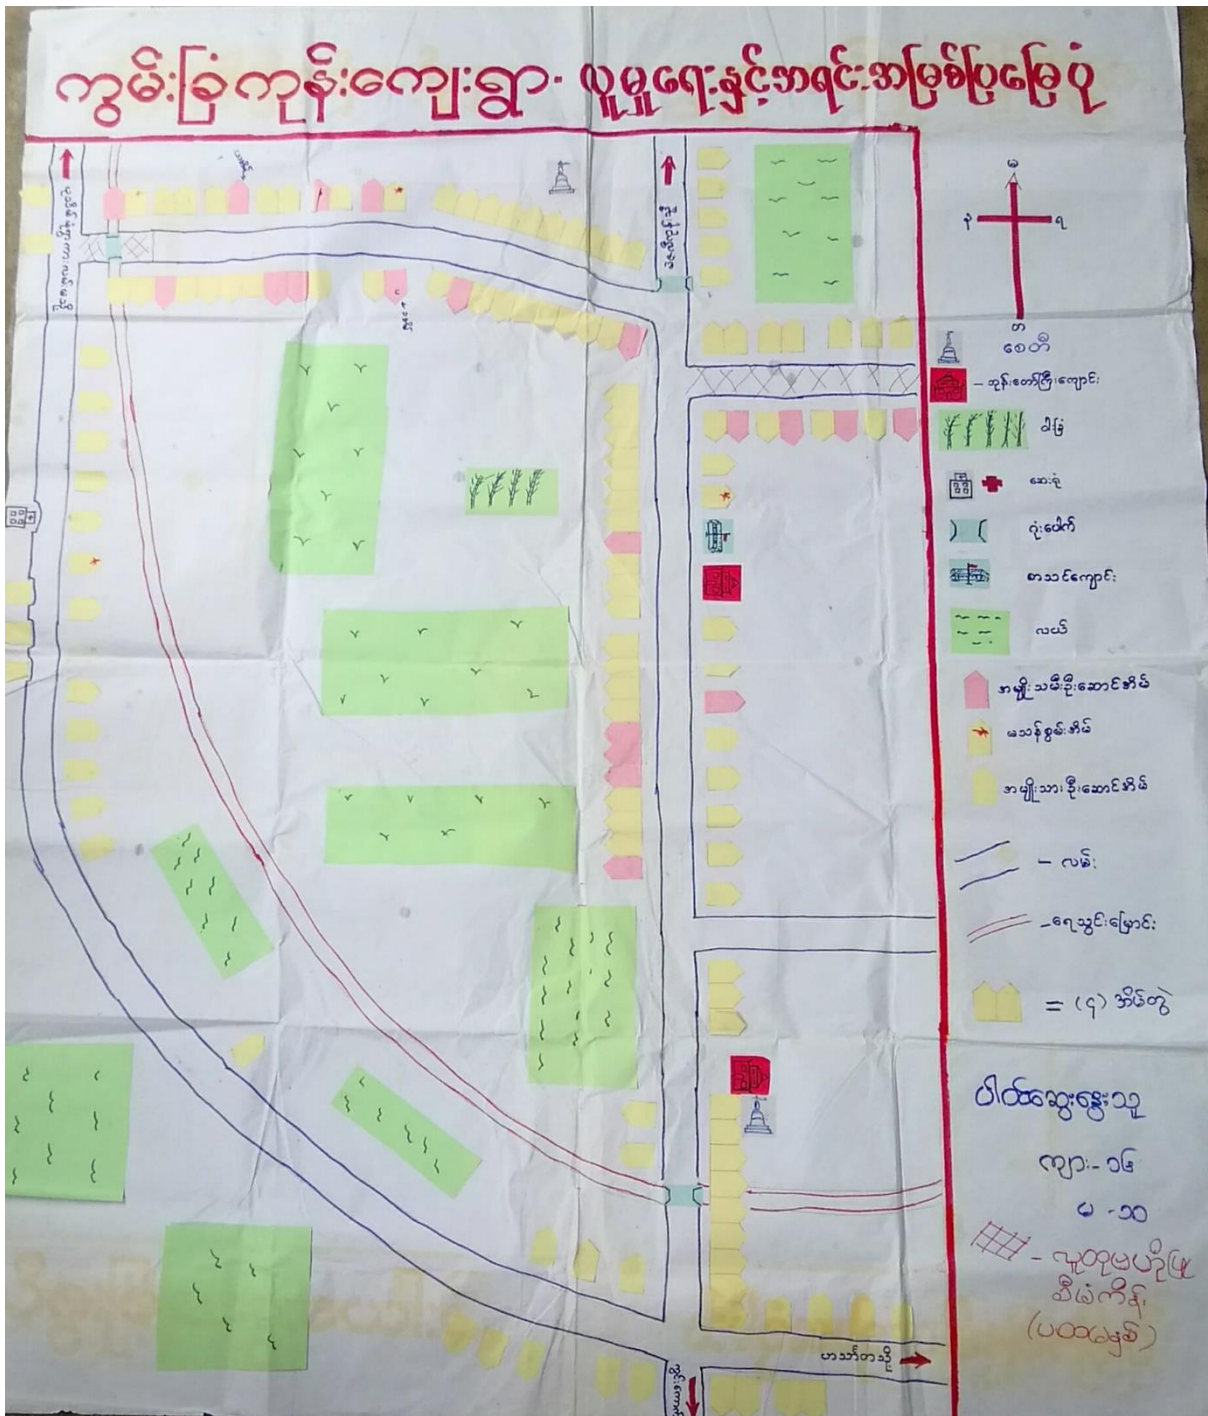 ကွမ်းခြံကုန်းကျေးရွာ- လူမှုရေးနှင့်အရင်းအမြစ်ပြမြေပုံ
မ
န
ရ
တ
စေတီ
- ဘုန်းတော်ကြီးကျောင်း
ဝါးခြံ
ဆေးရုံ
ဂုံးပေါက်
စာသင်ကျောင်း
လယ်
အမျိုးသမီးဦးဆောင်အိမ်
မသန်စွမ်းအိမ်
အမျိုးသားဦးဆောင်အိမ်
- လမ်း
-ရေသွင်းမြောင်း
= (၄) အိမ်တွဲ
ပါဝင်ဆွေးနွေးသူ
ကျား-၁၆
မ -၁၀
- လူထုဗဟိုပြု
စီမံကိန်း
(ပထမနှစ်)
ဟင်္သာတသို့